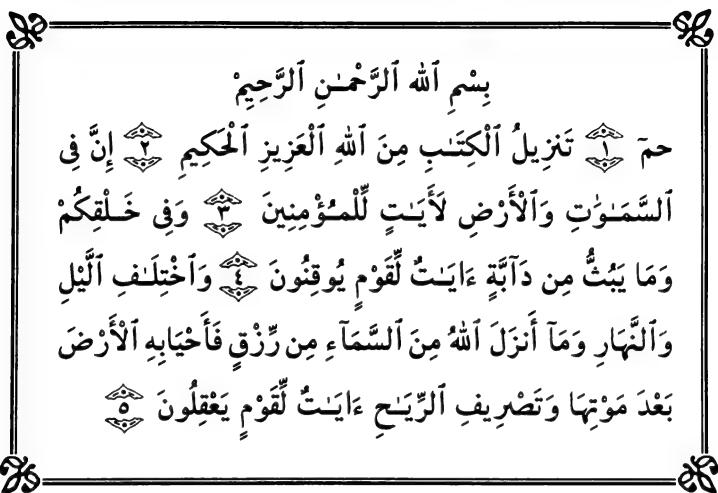 بِسْمِ ٱللهِ ٱلرَّحْمَـٰنِ ٱلرَّحِيمْ
حمٓ ١ تَنزِيلُ ٱلْكِتَـٰبِ مِنَ ٱللهِ ٱلْعَزِيزِ ٱلْحَكِيمِ ٢ إِنَّ فِى
ٱلسَّمَـٰوَٰتِ وَٱلْأَرْضِ لَأَيَـٰتٍ لِّلْمُؤْمِنِينَ ٣ وَفِى خَلْقِكُمْ
وَمَا يَبُثُّ مِن دَآبَّةٍ ءَايَـٰتٌ لِّقَوْمٍ يُوقِنُونَ ٤ وَٱخْتِلَـٰفِ ٱلَّيْلِ
وَٱلنَّهَارِ وَمَآ أَنزَلَ ٱللهُ مِنَ ٱلسَّمَآءِ مِن رِّزْقٍ فَأَحْيَابِهِ ٱلْأَرْضَ
بَعْدَ مَوْتِهَا وَتَصْرِيفِ ٱلرِّيَـٰحِ ءَايَـٰتٌ لِّقَوْمٍ يَعْقِلُونَ ٥